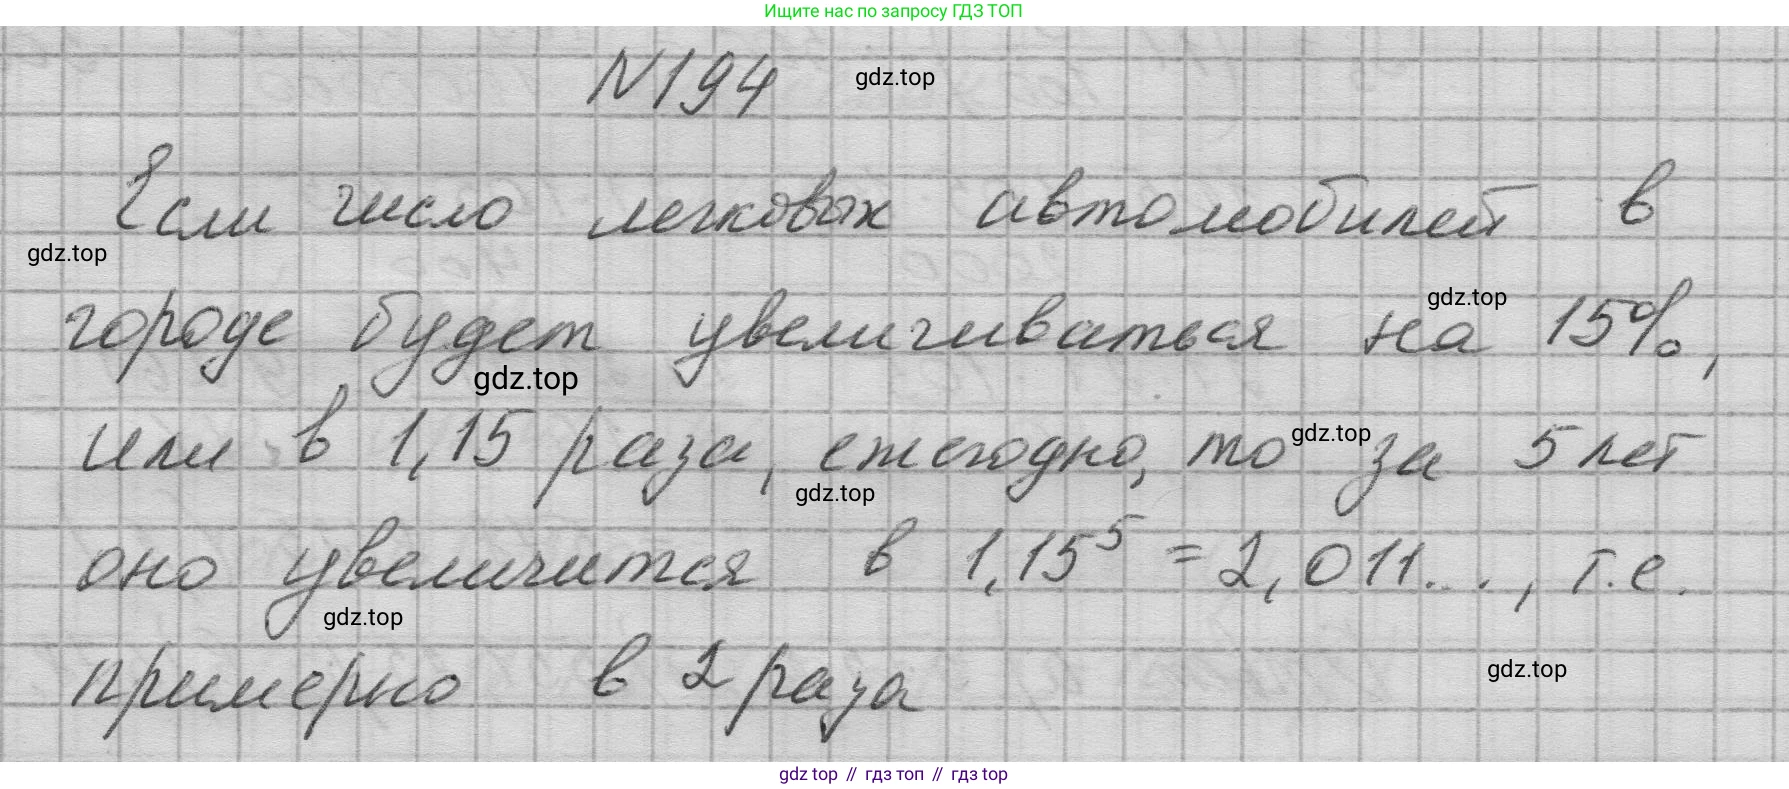 Ищите нас по запросу ГДЗ ТОП
N194
gdz.top
Если число легковых автомобилей в
gdz.top
gdz.top
городе будет увеличиваться на 15%,
gdz.top
или в 1,15 раза, ежегодно, то за 5 лет
gdz.top
gdz.top
оно увеличится в 1,15⁵ = 2,011..., т.е.
gdz.top
примерно в 2 раза
gdz.top
gdz top // гдз топ // гдз top